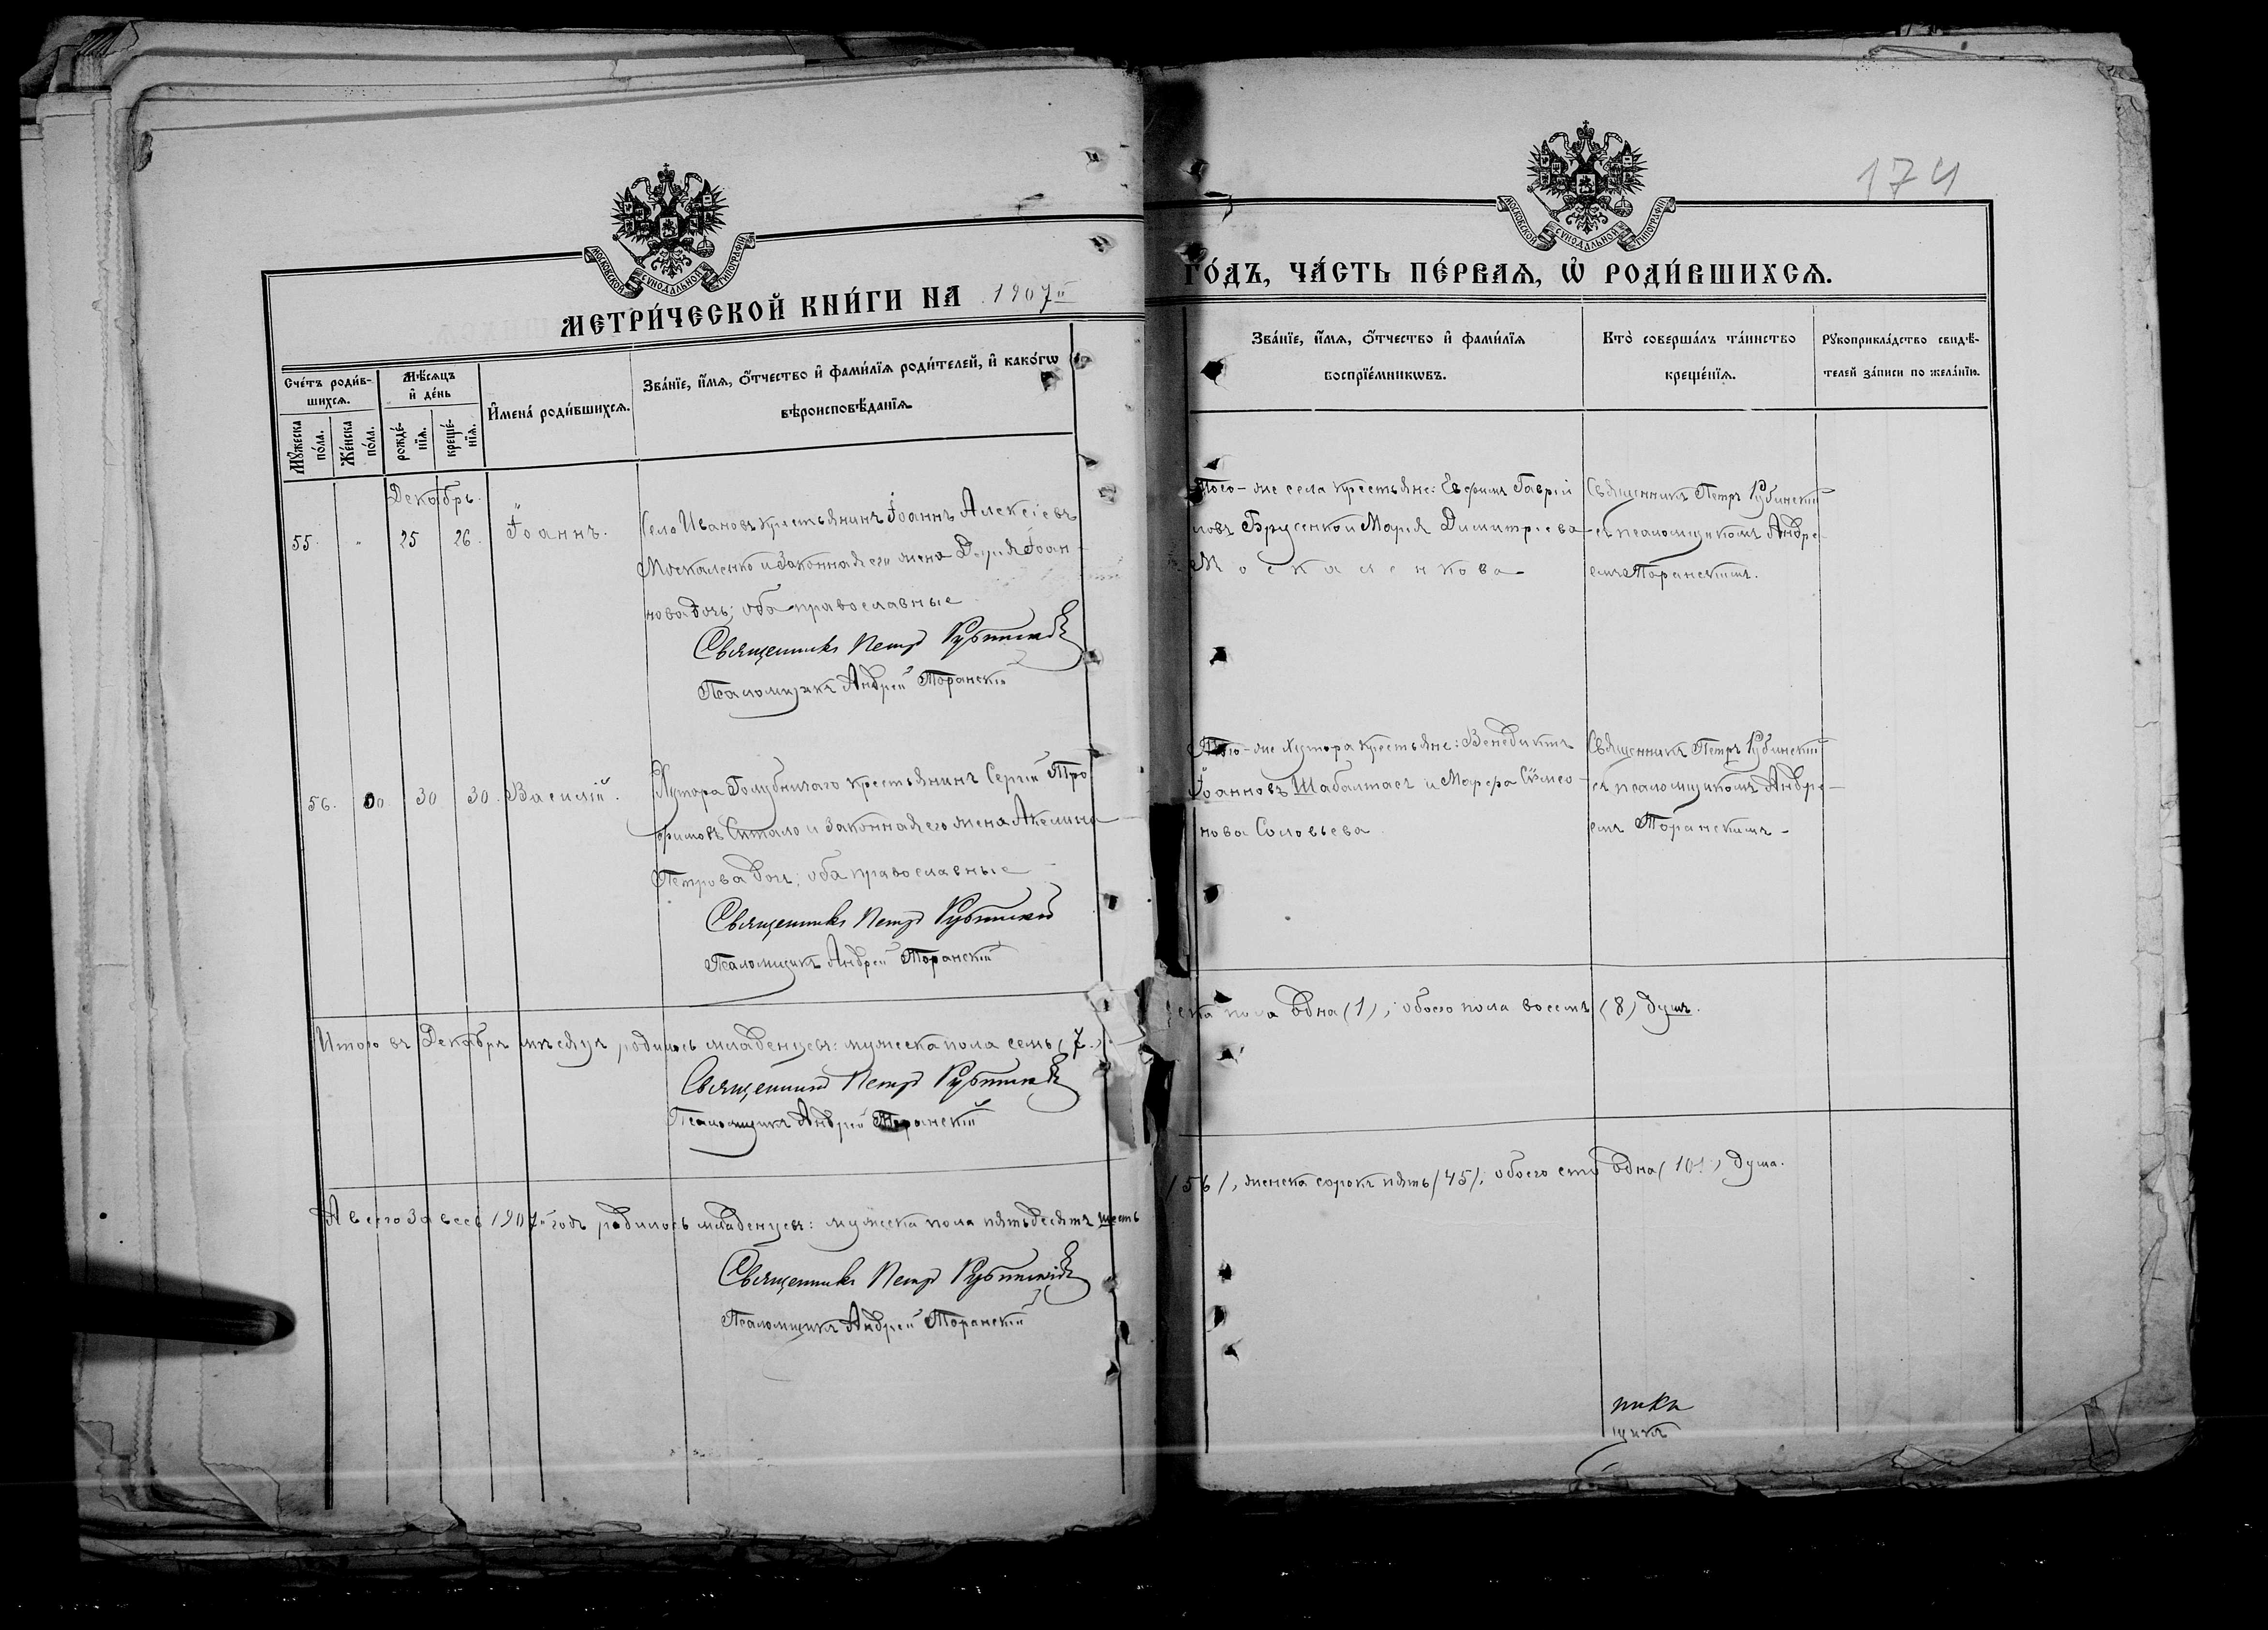 174
МОСКОВСКОЙ СѴНОДАЛЬНОЙ ТИПОГРАФІИ
МОСКОВСКОЙ СѴНОДАЛЬНОЙ ТИПОГРАФІИ
МЕТРИ́ЧЕСКОЙ КНИ́ГИ НА 1907й
ГО́ДЪ, ЧА́СТЬ ПЕ́РВАѦ, Ѡ҆ РОДИ́ВШИХСѦ.
Сче́тъ роди́в-
шихсѧ.
Мꙋ́жеска
по́ла.
Же́нска
по́ла.
Мѣ́сѧцъ
и҆ де́нь
рожде́-
нїѧ.
креще́-
нїѧ.
И҆мена̀ роди́вшихсѧ.
Зва́нїе, и҆́мѧ, ѻ҆́тчество и҆ фами́лїѧ роди́телей, и҆ како́гѡ
вѣроисповѣ́данїѧ
Зва́нїе, и҆́мѧ, ѻ҆́тчество и҆ фами́лїѧ
воспрїе́мникѡвъ.
Кто̀ соверша́лъ та́инство
креще́нїѧ.
Рꙋкоприкла́дство свидѣ́-
телей за́писи по жела́нїю.
Декабрь.
55. " 25 26. Іоаннъ.
Села Ивановъ крестьянинъ Іоаннъ Алексіевъ
Москаленко и законная его жена Дарія Іоан-
нова дочь; оба православные
Священникъ Петръ Рубинскій
Псаломщикъ Андрей Торанскій
Того-же села крестьяне: Евфимъ Гаврiи
ловъ Брусенко и Марія Димитріева
Москаленкова
Священникъ Петръ Рубинскій
съ псаломщикомъ Андре-
емъ Торанскимъ.
56. 30 30. Василій.
Хутора Голубничаго крестьянинъ Сергій Тро
фимовъ Ситало и законная его жена Акелина
Петрова доч; оба православные
Священникъ Петръ Рубинскій
Псаломщикъ Андрей Торанскій
Того-же хутора крестьяне: Венедиктъ
Іоанновъ Шабалтасъ и Марфа Сѵмео-
нова Соловьева
Священникъ Петръ Рубинскій
съ псаломщикомъ Андре-
емъ Торанскимъ -
Итого въ Декабрѣ мѣсяцѣ родилось младенцевъ: мужеска пола семь (7)
ска пола одна (1); обоего пола восемь (8) душъ.
Священникъ Петръ Рубинскій
Псаломщикъ Андрей Торанскій
А всего за весь 1907й годъ родилось младенцевъ: мужеска пола пятьдесятъ шесть
(56), женска сорокъ пять (45); обоего сто одна (101) душа.
Священникъ Петръ Рубинскій
Псаломщикъ Андрей Торанскій
никъ
щикъ